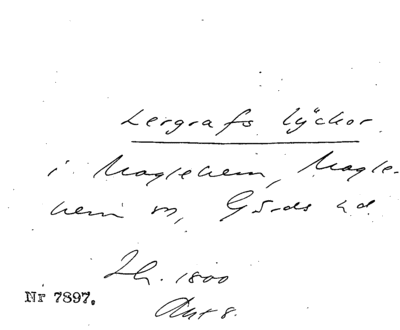 Lergrafs lyckor
i Maglehem, Magle-
hem sn, Gärds hd.
Sk. 1800
Nr 7897.
Akt 8.